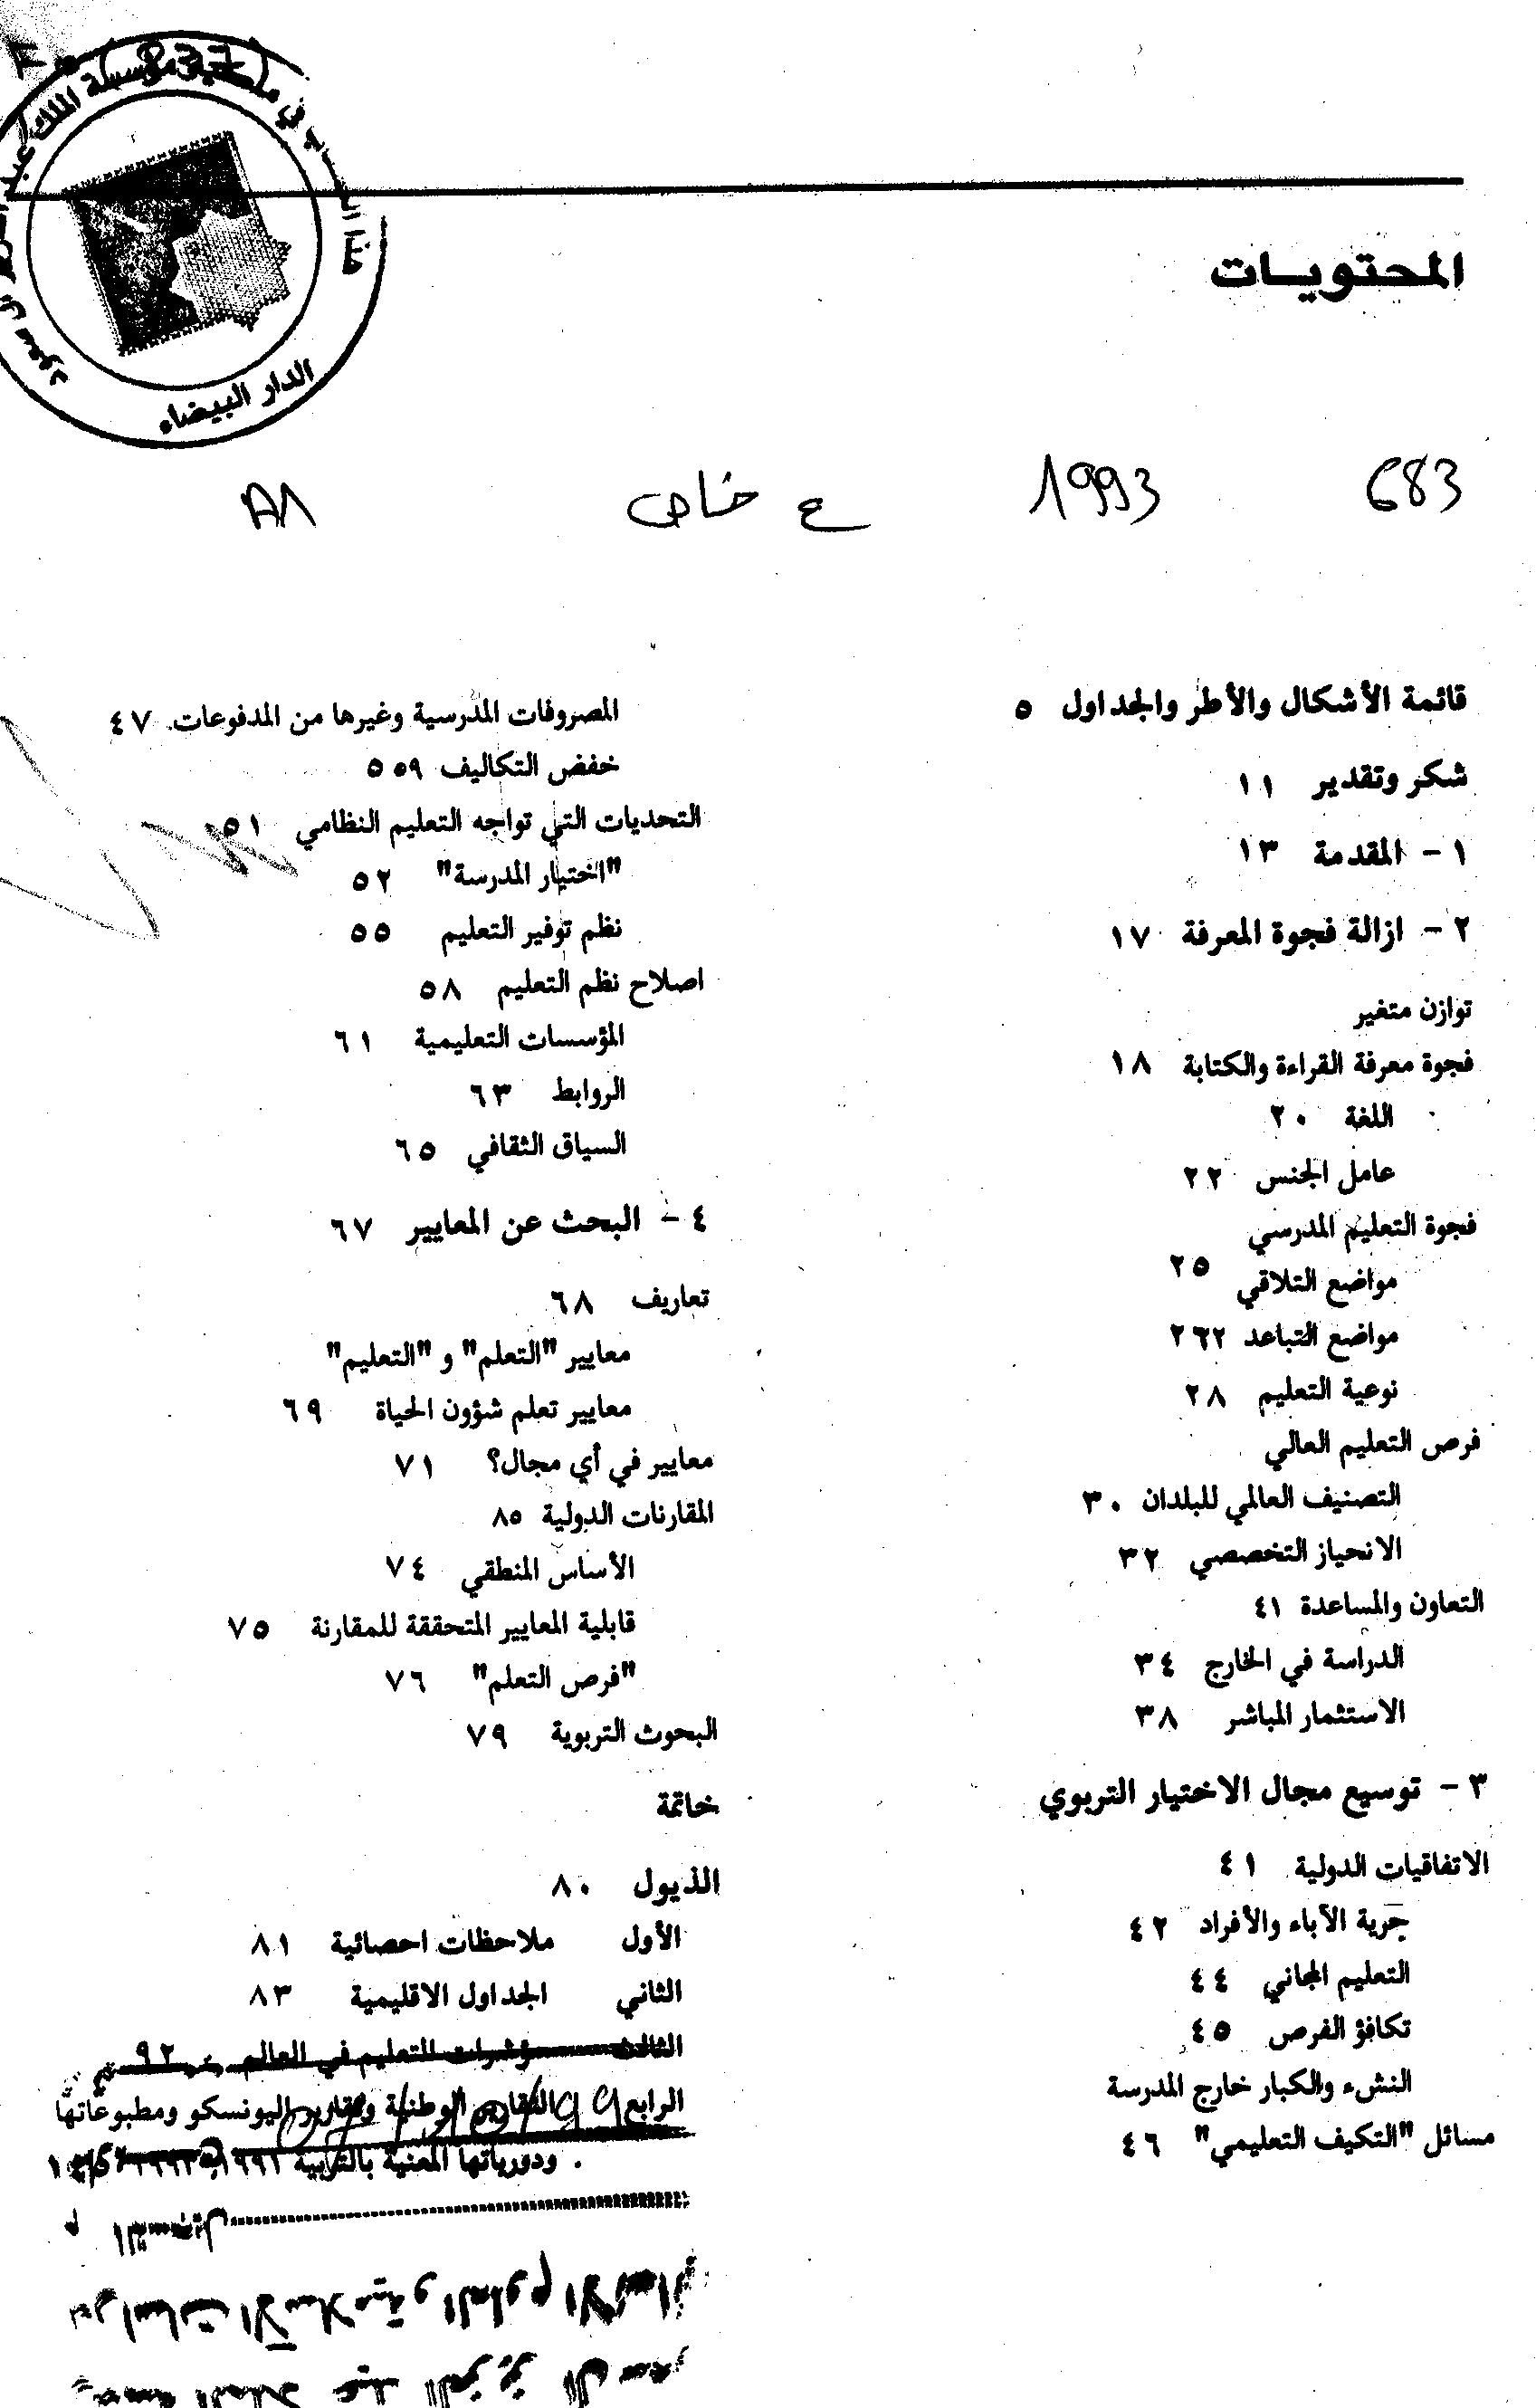 المحتويات
683 1993 ع خاص
الدار البيضاء
قائمة الأشكال والأطر والجداول ٥
شكر وتقدير ١١
١ - المقدمة ١٣
٢ - ازالة فجوة المعرفة ١٧
توازن متغير
فجوة معرفة القراءة والكتابة ١٨
اللغة ٢٠
عامل الجنس ٢٢
فجوة التعليم المدرسي
مواضع التلاقي ٢٥
مواضع التباعد ٢٦٢
نوعية التعليم ٢٨
فرص التعليم العالي
التصنيف العالمي للبلدان ٣٠
الانحياز التخصصي ٣٢
التعاون والمساعدة ٤١
الدراسة في الخارج ٣٤
الاستثمار المباشر ٣٨
٣ - توسيع مجال الاختيار التربوي
الاتفاقيات الدولية ٤١
حرية الآباء والأفراد ٤٢
التعليم المجاني ٤٤
تكافؤ الفرص ٤٥
النشء والكبار خارج المدرسة
مسائل "التكيف التعليمي" ٤٦
المصروفات المدرسية وغيرها من المدفوعات ٤٧
خفض التكاليف ٥٥٩
التحديات التي تواجه التعليم النظامي ٥١
"اختيار المدرسة" ٥٢
نظم توفير التعليم ٥٥
اصلاح نظم التعليم ٥٨
المؤسسات التعليمية ٦١
الروابط ٦٣
السياق الثقافي ٦٥
٤ - البحث عن المعايير ٦٧
تعاريف ٦٨
معايير "التعلم" و "التعليم"
معايير تعلم شؤون الحياة ٦٩
معايير في أي مجال؟ ٧١
المقارنات الدولية ٨٥
الأساس المنطقي ٧٤
قابلية المعايير المتحققة للمقارنة ٧٥
"فرص التعلم" ٧٦
البحوث التربوية ٧٩
خاتمة
الذيول ٨٠
الأول ملاحظات احصائية ٨١
الثاني الجداول الاقليمية ٨٣
الثالث مؤشرات التعليم في العالم ٩٢
الرابع التقارير الوطنية وتقارير اليونسكو ومطبوعاتها
ودورياتها المعنية بالتربية